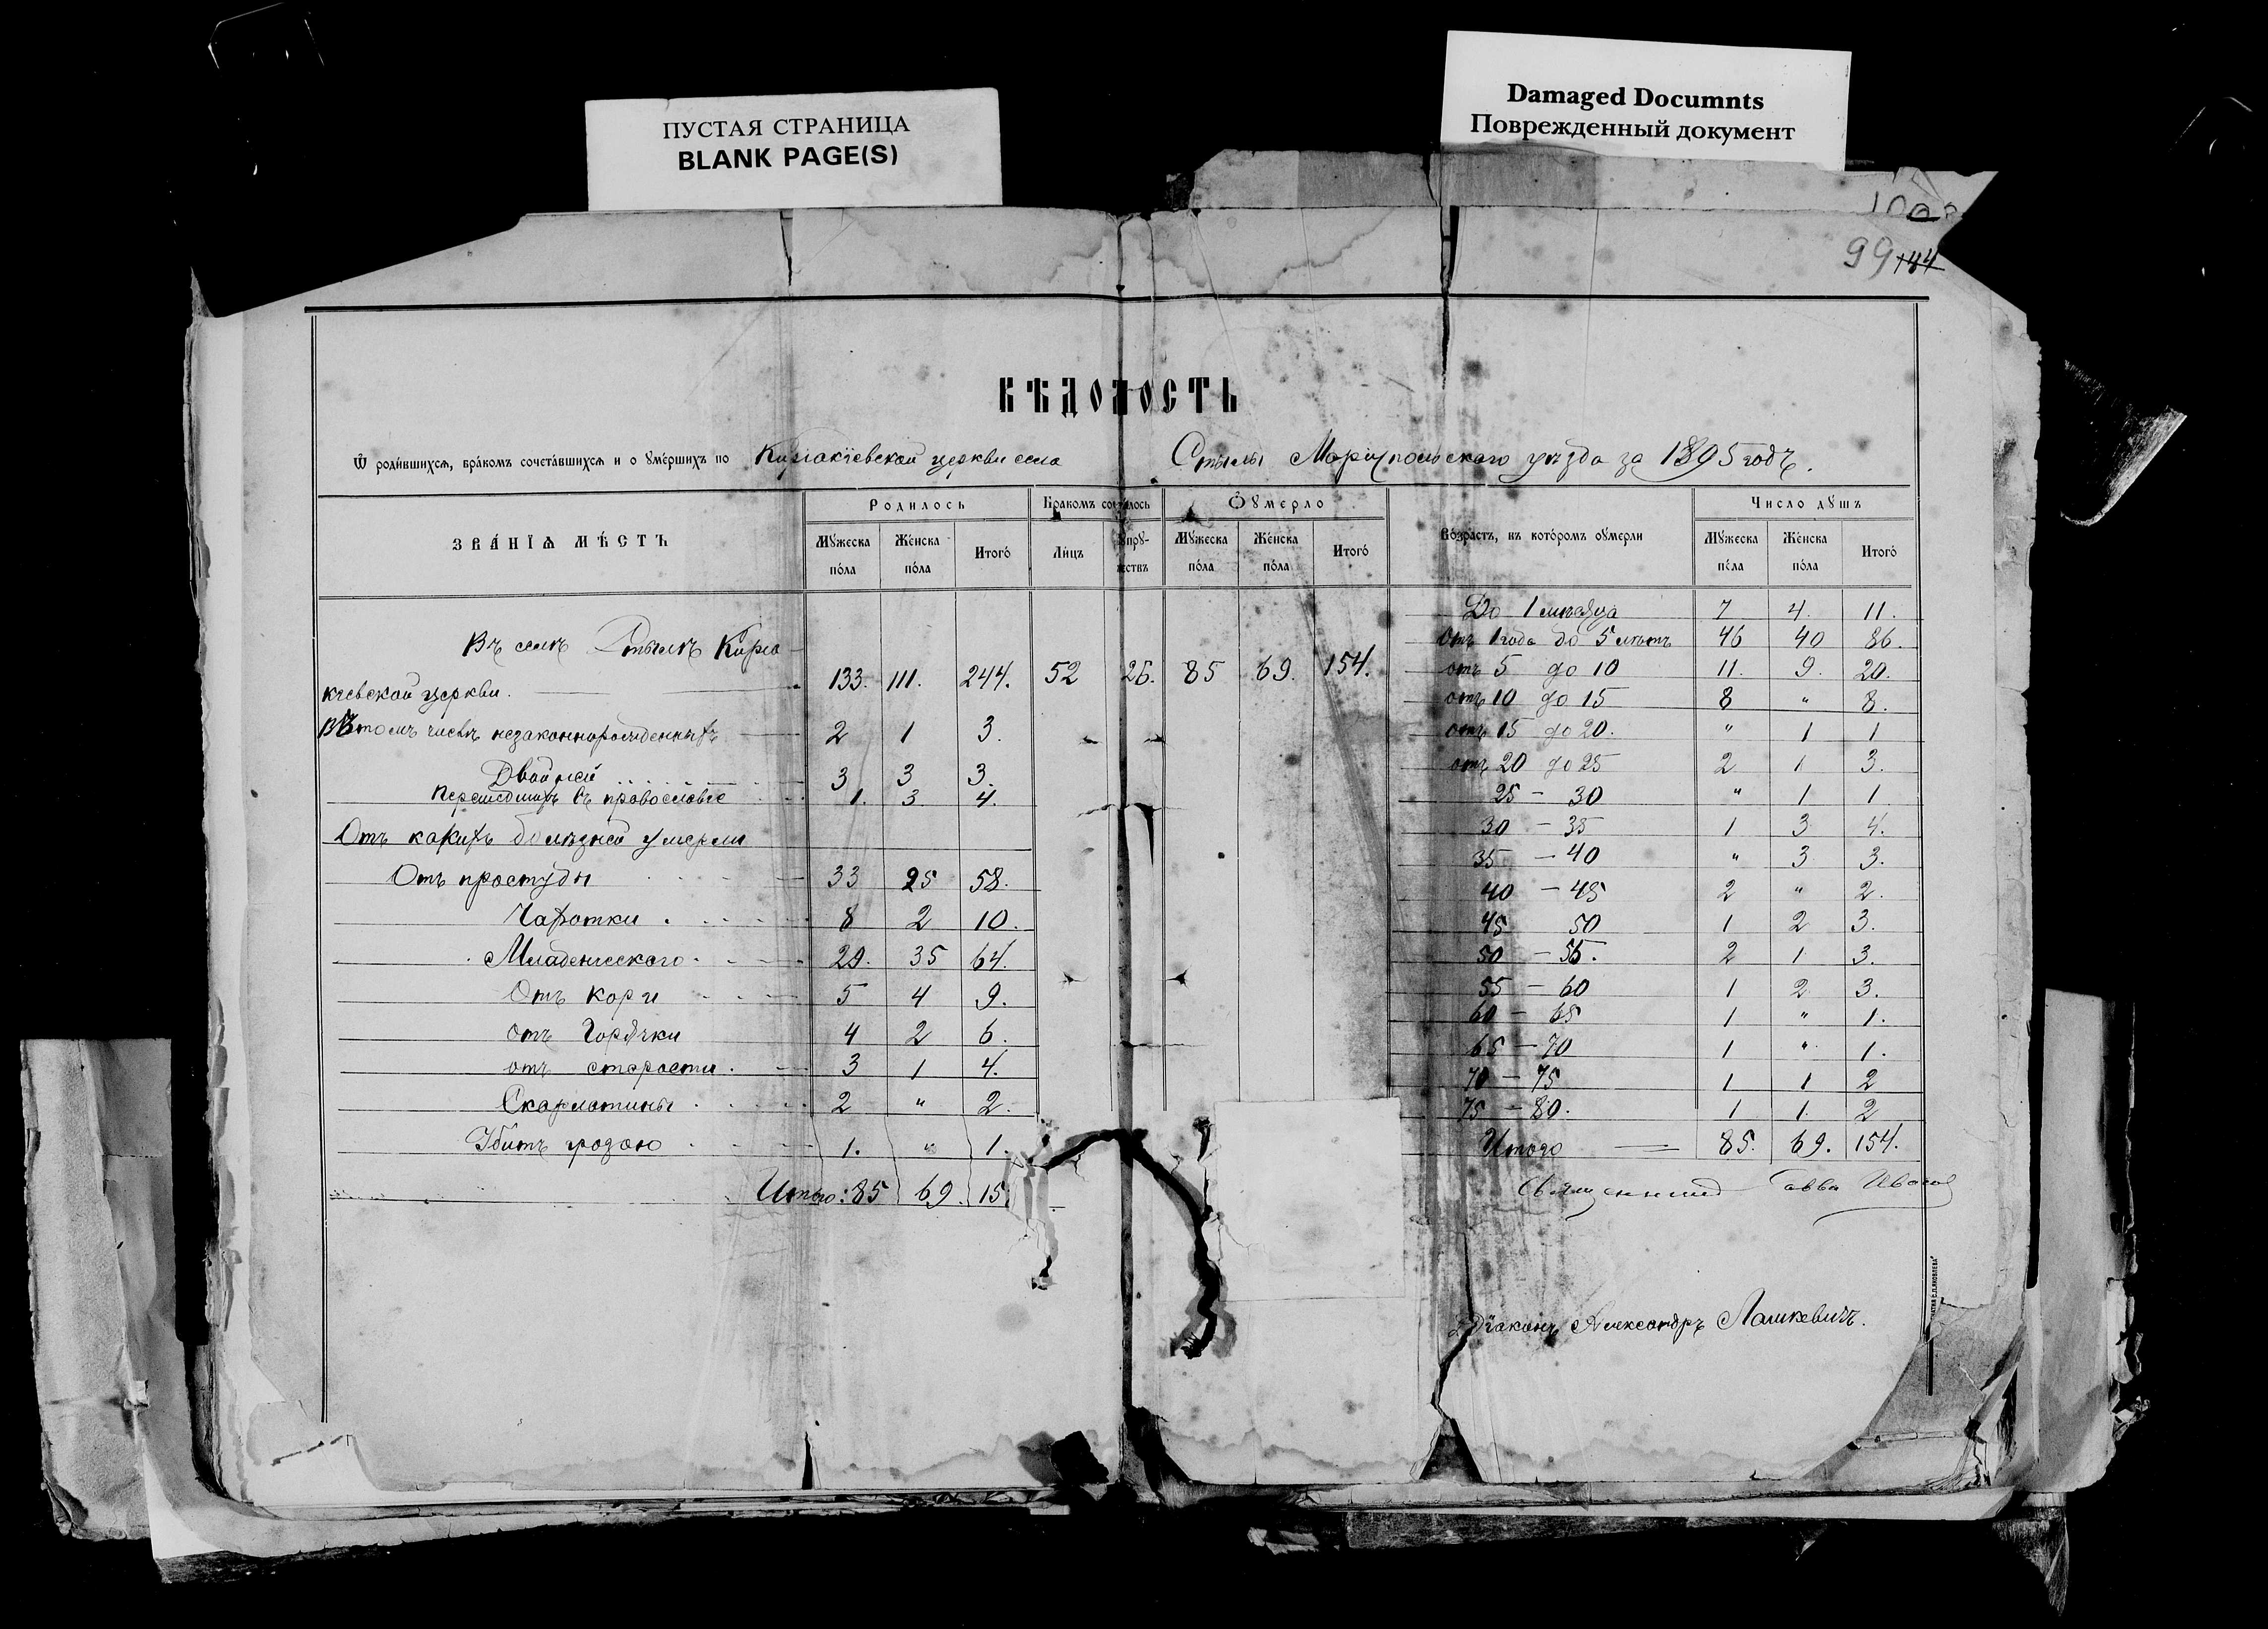 ПУСТАЯ СТРАНИЦА
BLANK PAGE(S)
Damaged Documnts
Поврежденный документ
99 144
ВѢДОМОСТЬ
Ѿ роди́вшихсѧ, бра́комъ сочета́вшихсѧ и о ᲂуме́ршихъ по Киріакіевской церкви села Стылы Маріупольскаго уѣзда за 1895 годъ.
ЗВА́НІѦ МѢ́СТЪ
Родилось
Мꙋжеска по́ла
Же́нска по́ла
Итого̀
Бракомъ сочталось
Ли́цъ
Ѹмерло
Мꙋжеска по́ла
Же́нска по́ла
Итого̀
Во́зрастъ, въ кото́ромъ оумерли
Число душъ
Мꙋжеска по́ла
Же́нска по́ла
Итого̀
Въ селѣ Стылѣ Киріа-
кіевской церкви. 133. 111. 244. 52 26. 85 69. 154.
Въ томъ числѣ незаконнорожденныхъ 2 1 3.
Двойней 3 3 3.
Перешедшихъ въ православіе 1. 3 4.
Отъ какихъ болѣзней умерли
Отъ простуды 33 25 58.
Чахотки 8 2 10.
Младенческаго 29. 35 64.
Отъ кори 5 4 9.
отъ Горячки 4 2 6.
отъ старости 3 1 4.
Скарлатины 2 " 2.
Убитъ грозою 1. " 1.
Итого: 85 69. 15
До 1 мѣсяца 7 4. 11.
Отъ 1 года до 5 лѣтъ 46 40 86.
отъ 5 до 10 11. 9. 20.
отъ 10 до 15 8 " 8.
отъ 15 до 20. " 1 1
отъ 20 до 25 2 1 3.
25 - 30 " 1 1
30 - 35 1 3 4.
35 - 40 " 3 3.
40 - 45 2 " 2.
45 50 1 2 3.
50 - 55. 2 1 3.
55 - 60 1 2 3.
60 - 65 1 " 1.
65 - 70 1 " 1.
70 - 75 1 1 2
75 - 80. 1 1. 2
Итого 85. 69. 154.
Священникъ Савва
Діаконъ Александръ Лашкевичъ.